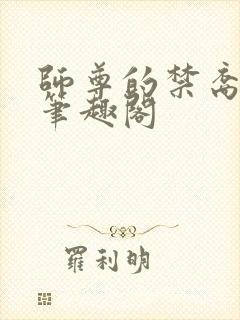 師尊的禁脔
筆趣閣
羅利明